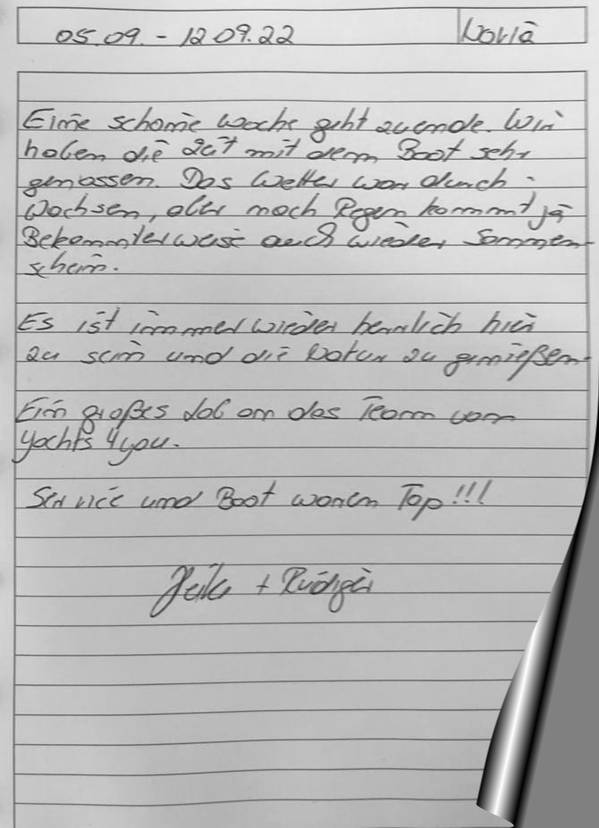 05.09. - 12.09.22
Eine schöne Woche geht zuende. Wir
haben die Zeit mit dem Boot sehr
genossen. Das Wetter war durch-
wachsen, aber nach Regen kommt ja
Bekannterweise auch wieder Sonnen-
schein.
Es ist immer wieder herrlich hier
zu sein und die Natur zu genießen.
Ein großes Lob an das Team von
Yachts 4you.
Service und Boot waren Top!!!
Heike + Rüdiger